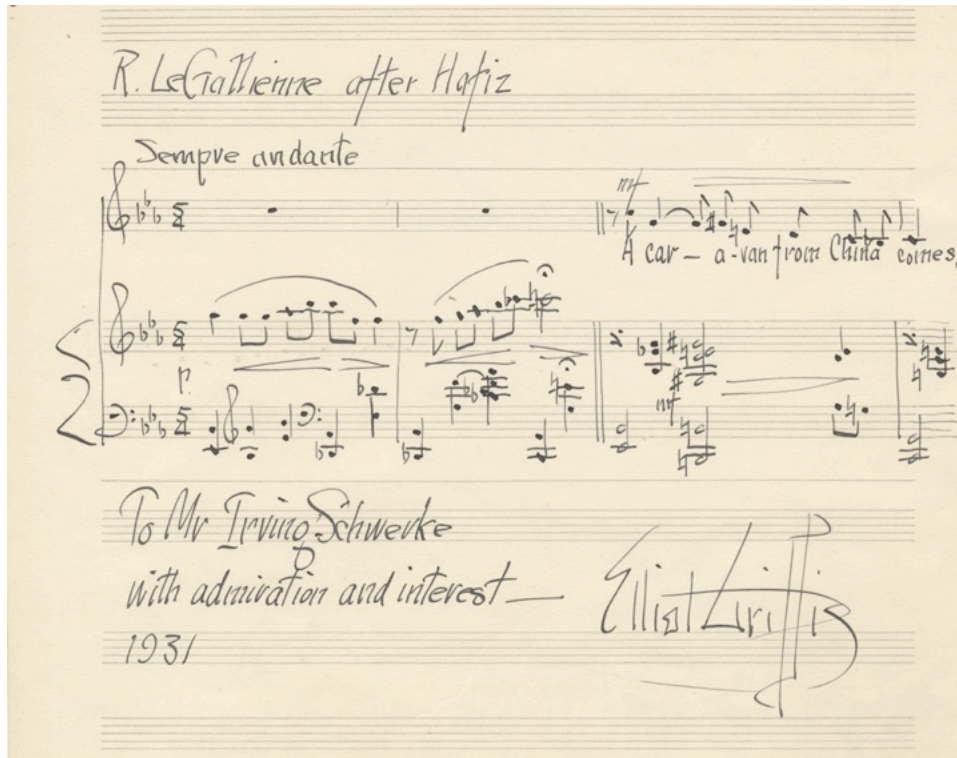 R. LeGallienne after Hafiz
Sempre andante
mf
A car – a-van from China comes,
p
mf
To Mr Irving Schwerke
with admiration and interest —
1931
Elliot Griffis